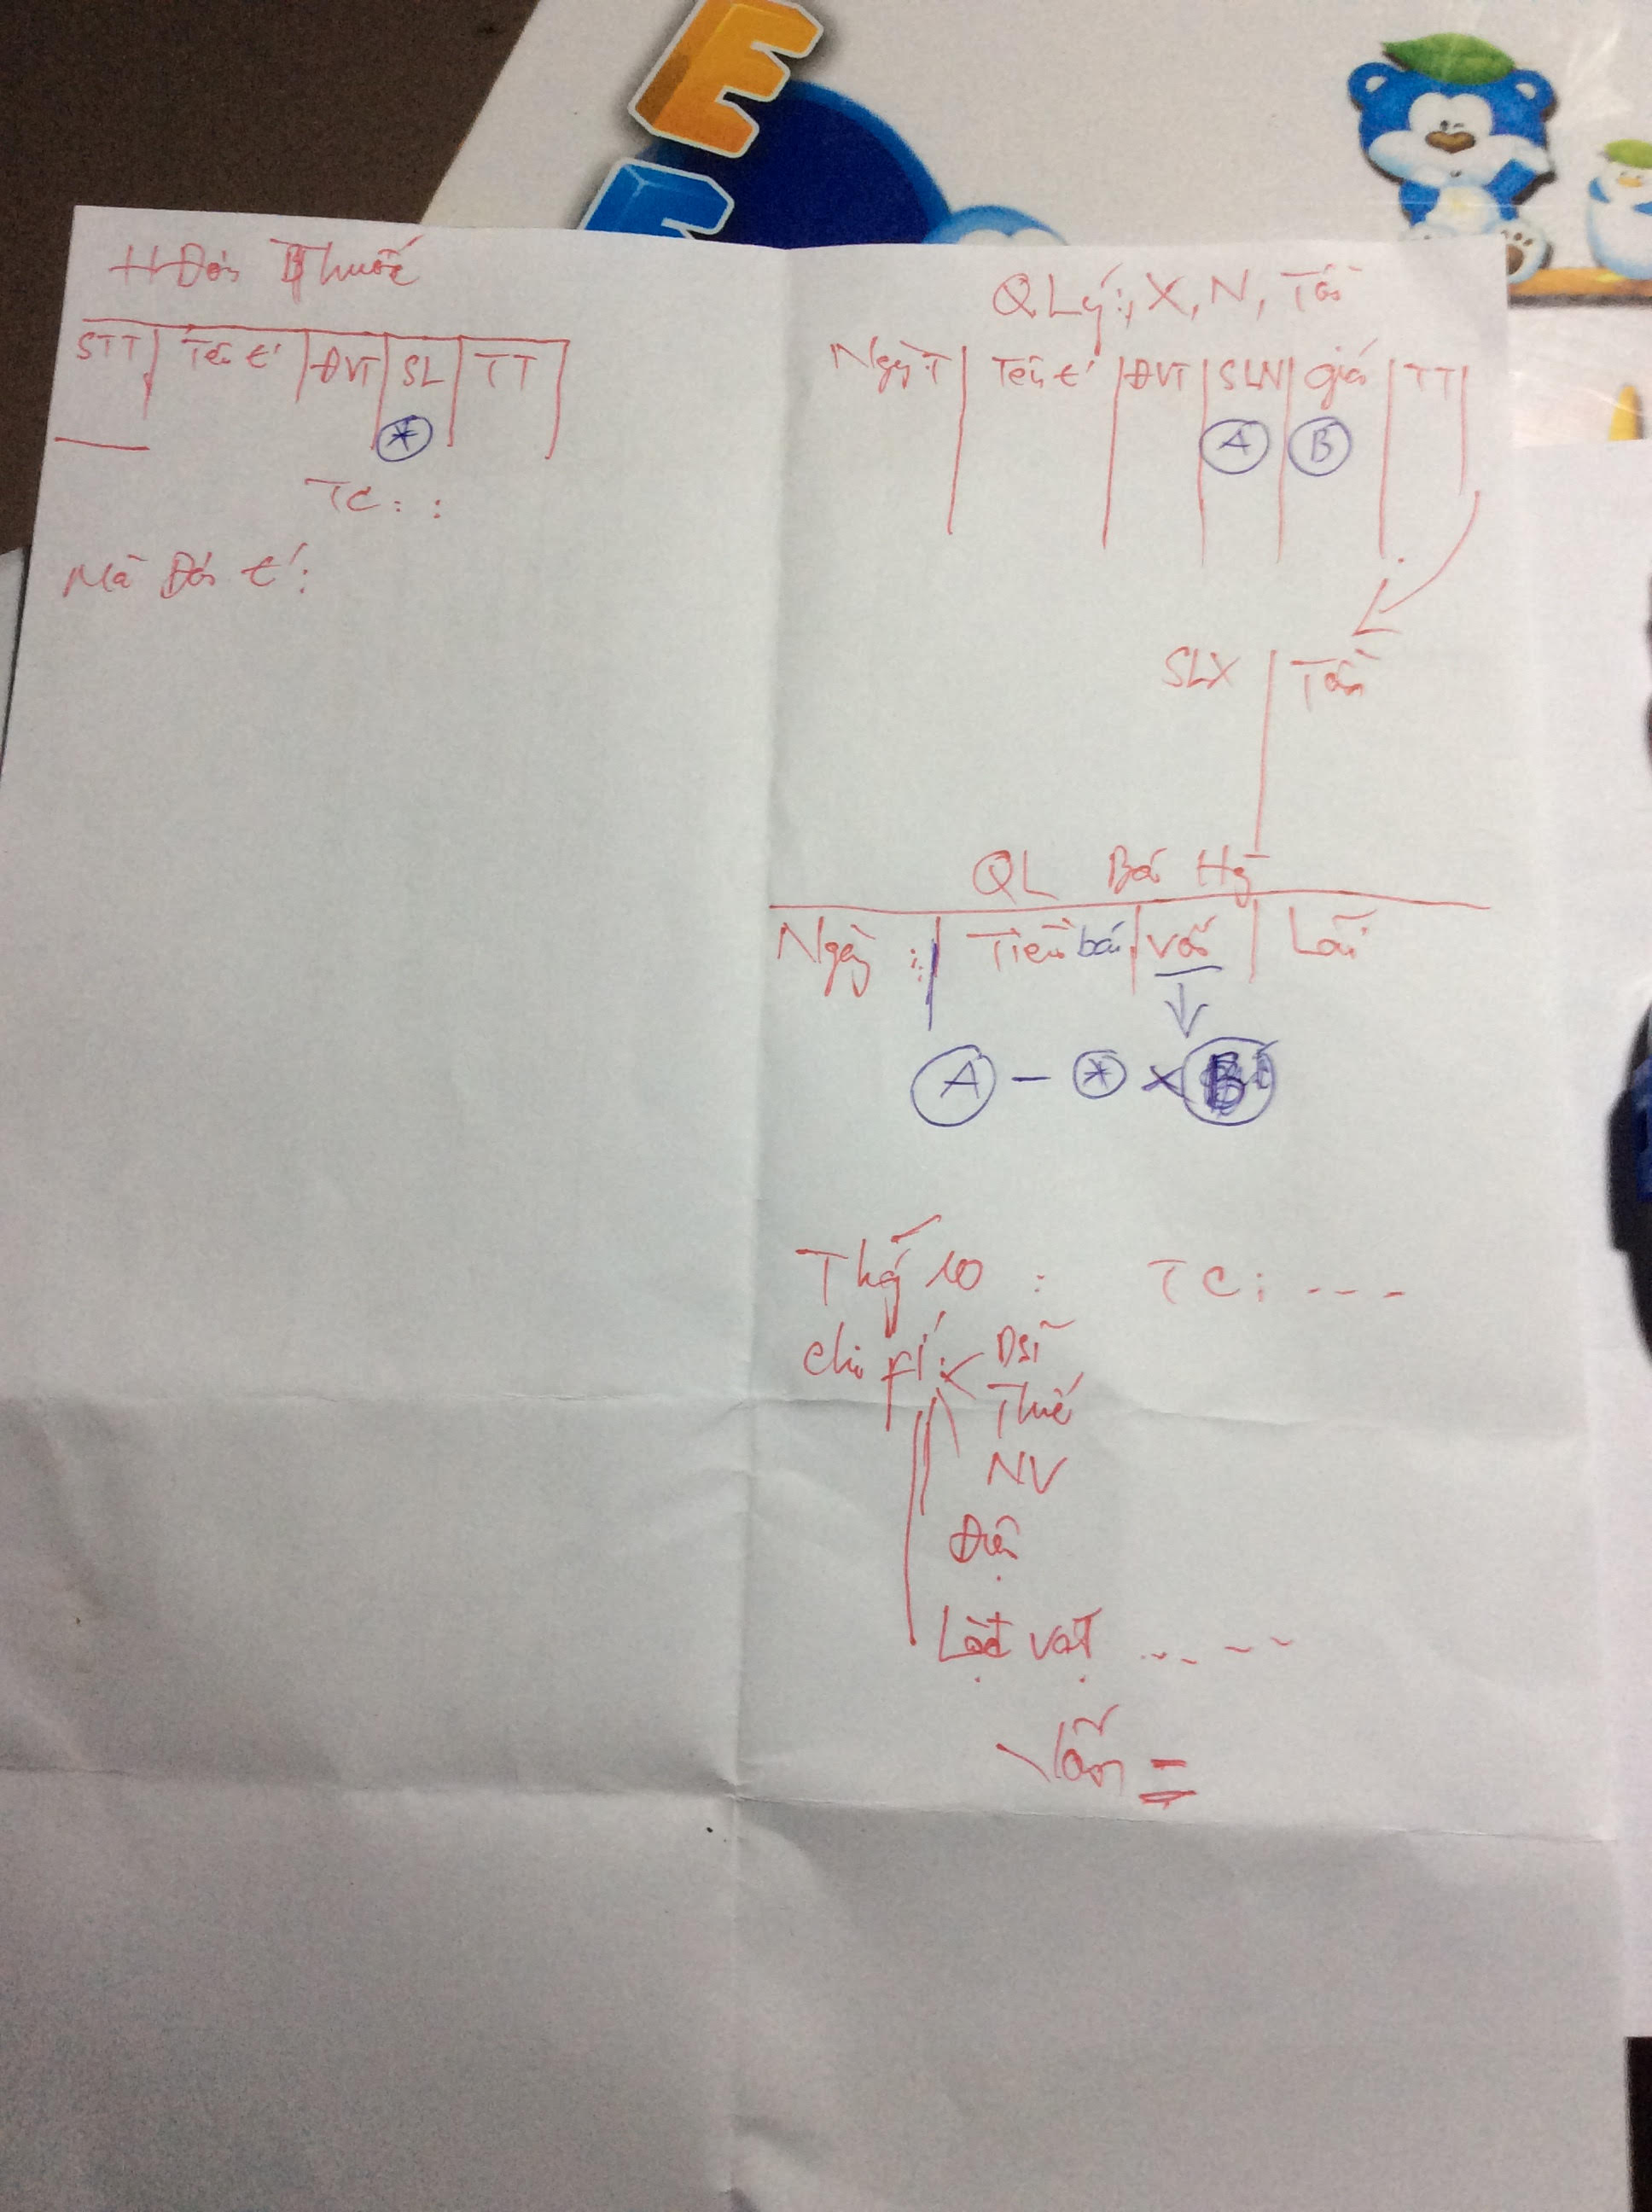 HĐơn Thuốc
STT Tên t' ĐVT SL TT
*
TC: :
Mã Đơn t':
QLý:, X, N, Tồn
Ngày T Tên t' ĐVT SLN giá TT
A B
SLX Tồn
QL Bán Hg
Ngày: Tiền bán vốn Lãi
A - * x B
Thg 10 : TC: ---
chi fí: DSĩ
Thuế
NV
Điện
Lặt vặt ... --
=
E